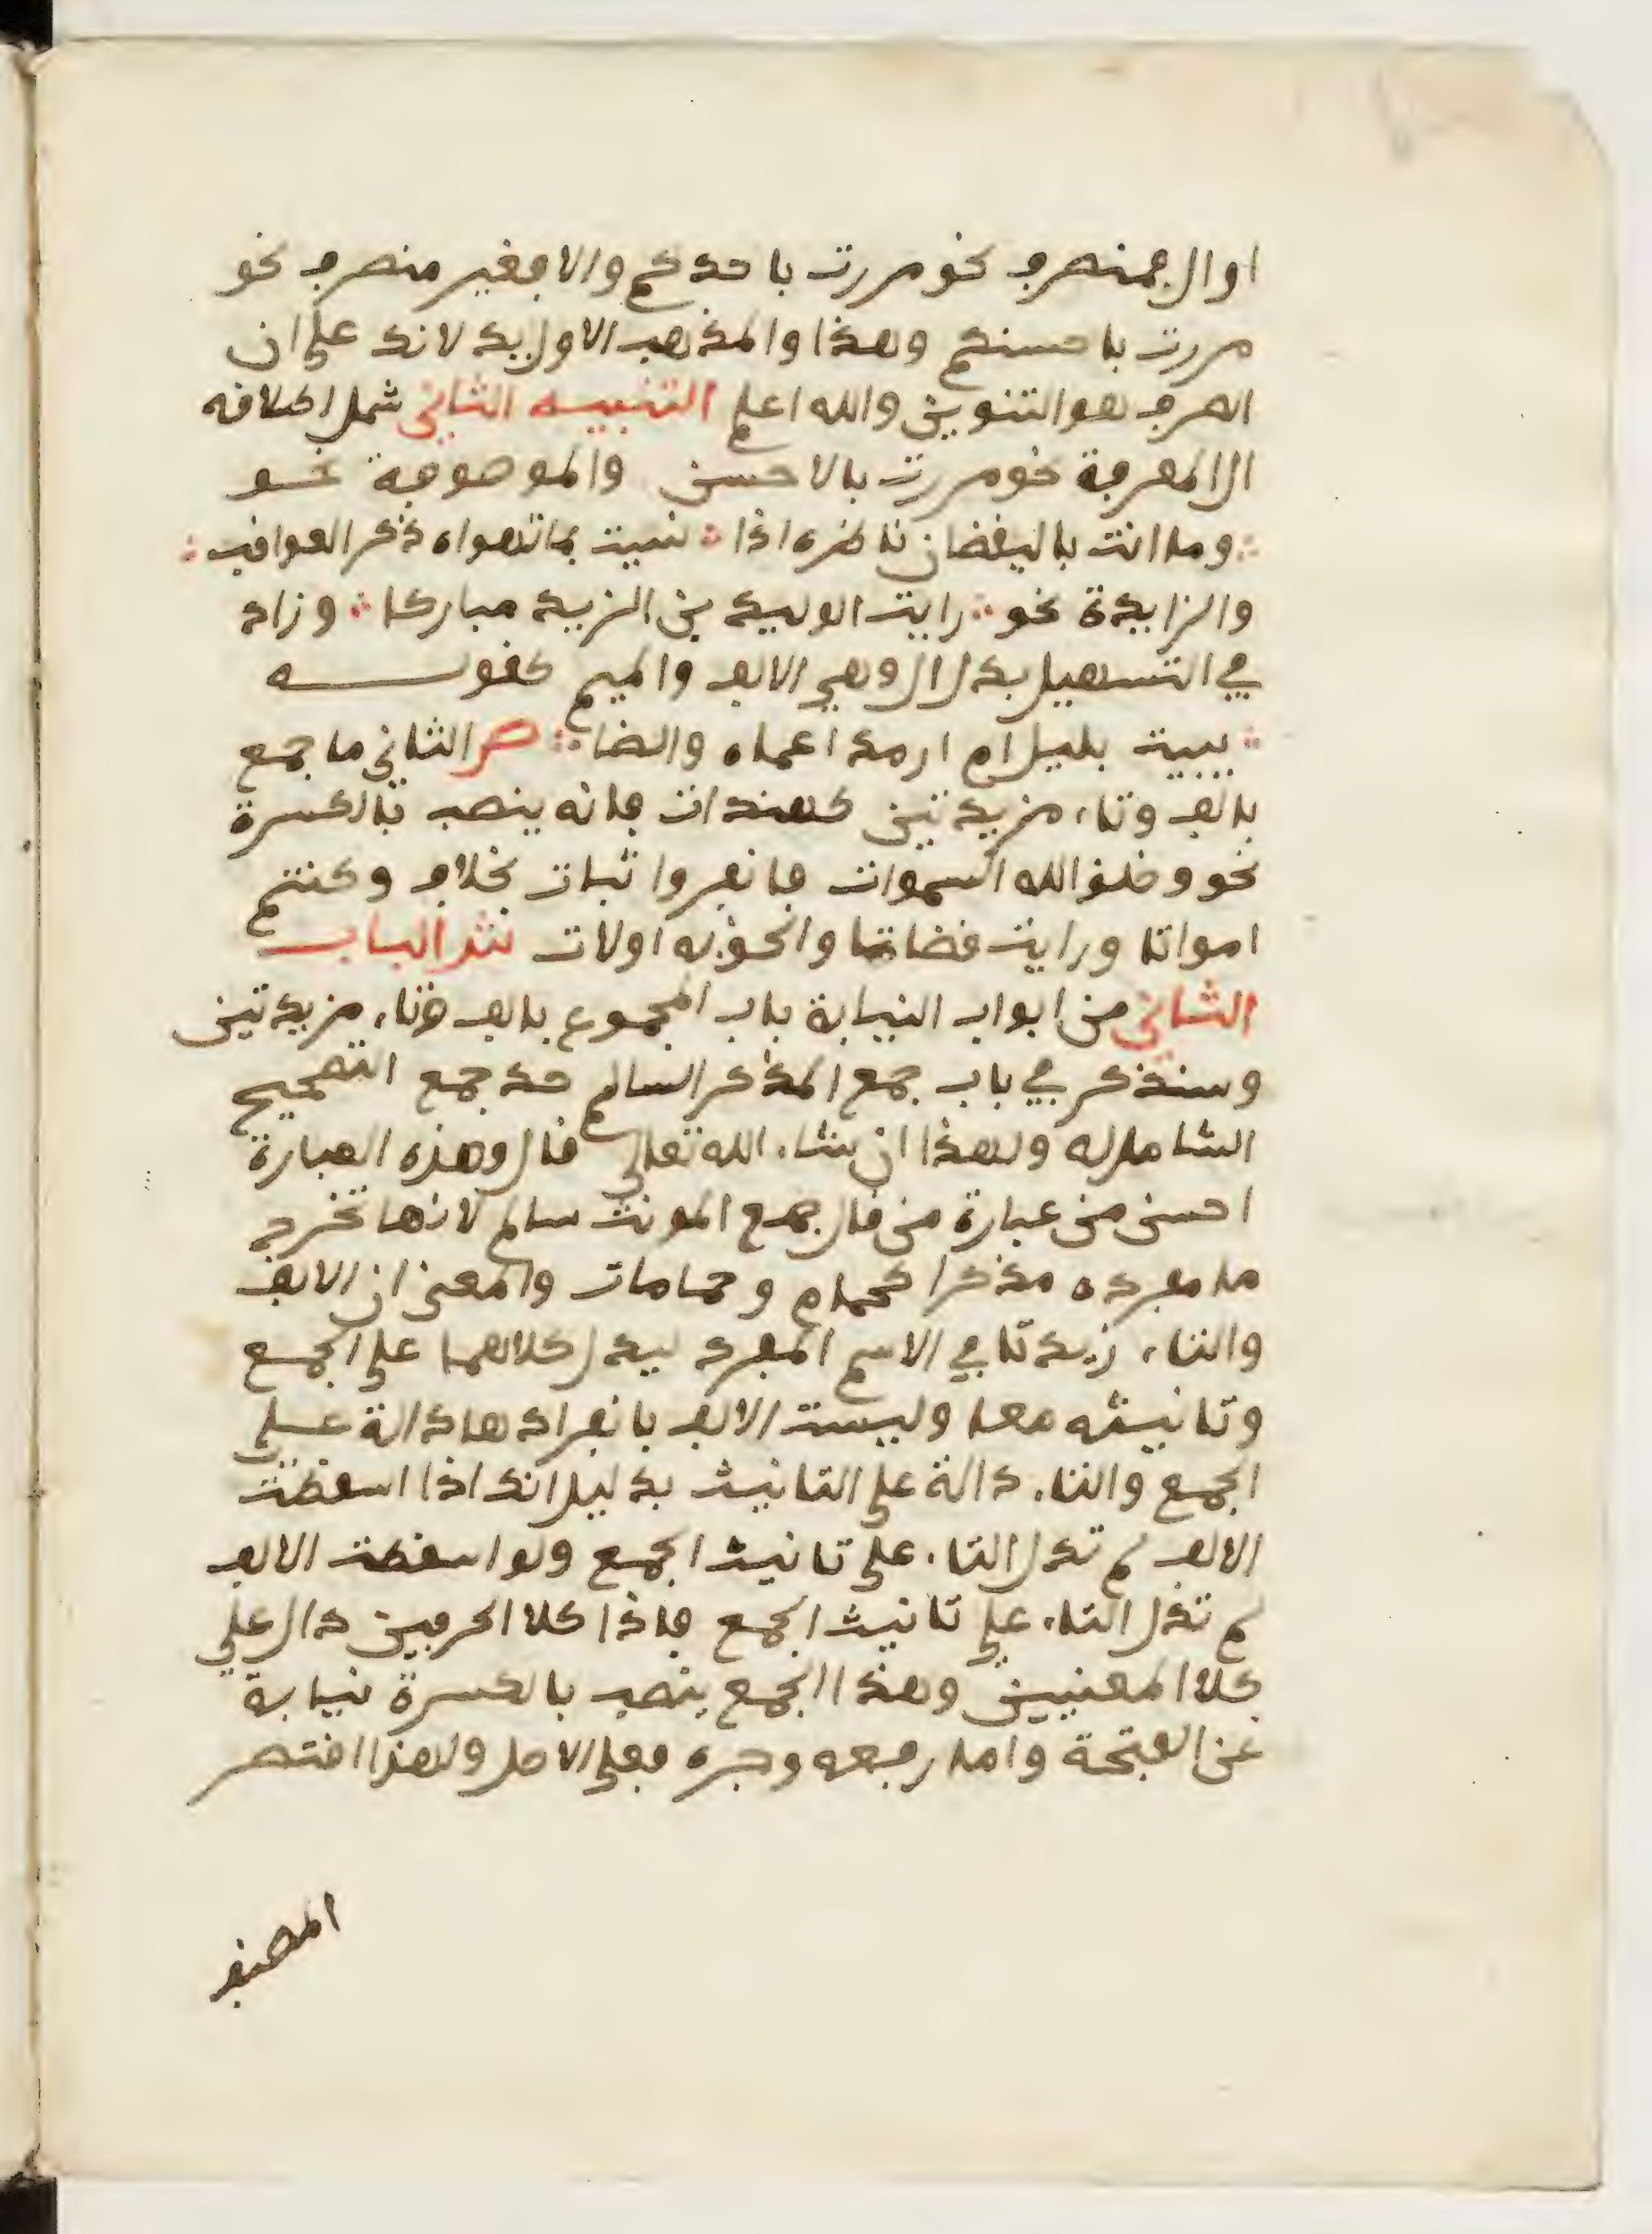 او ال فمنصرف نحو مررت باحدكم والا فغير منصرف نحو
مررت باحسنكم وهذا والمذهب الاول يدلانك على ان
الصرف هو التنوين والله اعلم التنبيه الثاني شمل اطلاقه
ال المعرفة نحو مررت بالاحسن والموصوفة نحو
وما انت باليقضان ناظره اذا نسيت بما تهواه ذكر العواقب
والزايدة نحو رايت الوليد بن اليزيد مباركا وزاد
في التسهيل بدل ال وهي الالف والميم كقوله
تبيت بليل ام ارمد اعماه والضا ص الثاني ما جمع
بالف وتاء مزيدتين كهندات فانه ينصب بالكسرة
نحو وخلق الله السموات فانفروا ثبات بخلاف وكنتم
امواتا ورايت قضاتا والحق به اولات ش الباب
الثاني من ابواب النيابة باب المجموع بالف وتاء مزيدتين
وسنذكر في باب جمع المذكر السالم حد جمع التصحيح
الشامل له ولهذا ان شاء الله تعالى قال وهذه العبارة
احسن من عبارة من قال جمع المونث سالم لانها تخرج
ما مفرده مذكرا كحمام وحمامات والمعنى ان الالف
والتاء زيدتا في الاسم المفرد ليدل كلاهما على الجمع
وتانيثه معا وليست الالف بانفرادها دالة على
الجمع والتاء دالة على التانيث بدليل انك اذا اسقطت
الالف لم تدل التاء على تانيث الجمع ولو اسقطت الالف
لم تدل التاء على تانيث الجمع فاذا كلا الحرفين دال على
كلا المعنيين وهذا الجمع ينصب بالكسرة نيابة
عن الفتحة واما رفعه وجره فعلى الاصل ولهذا اقتصر
المصنف